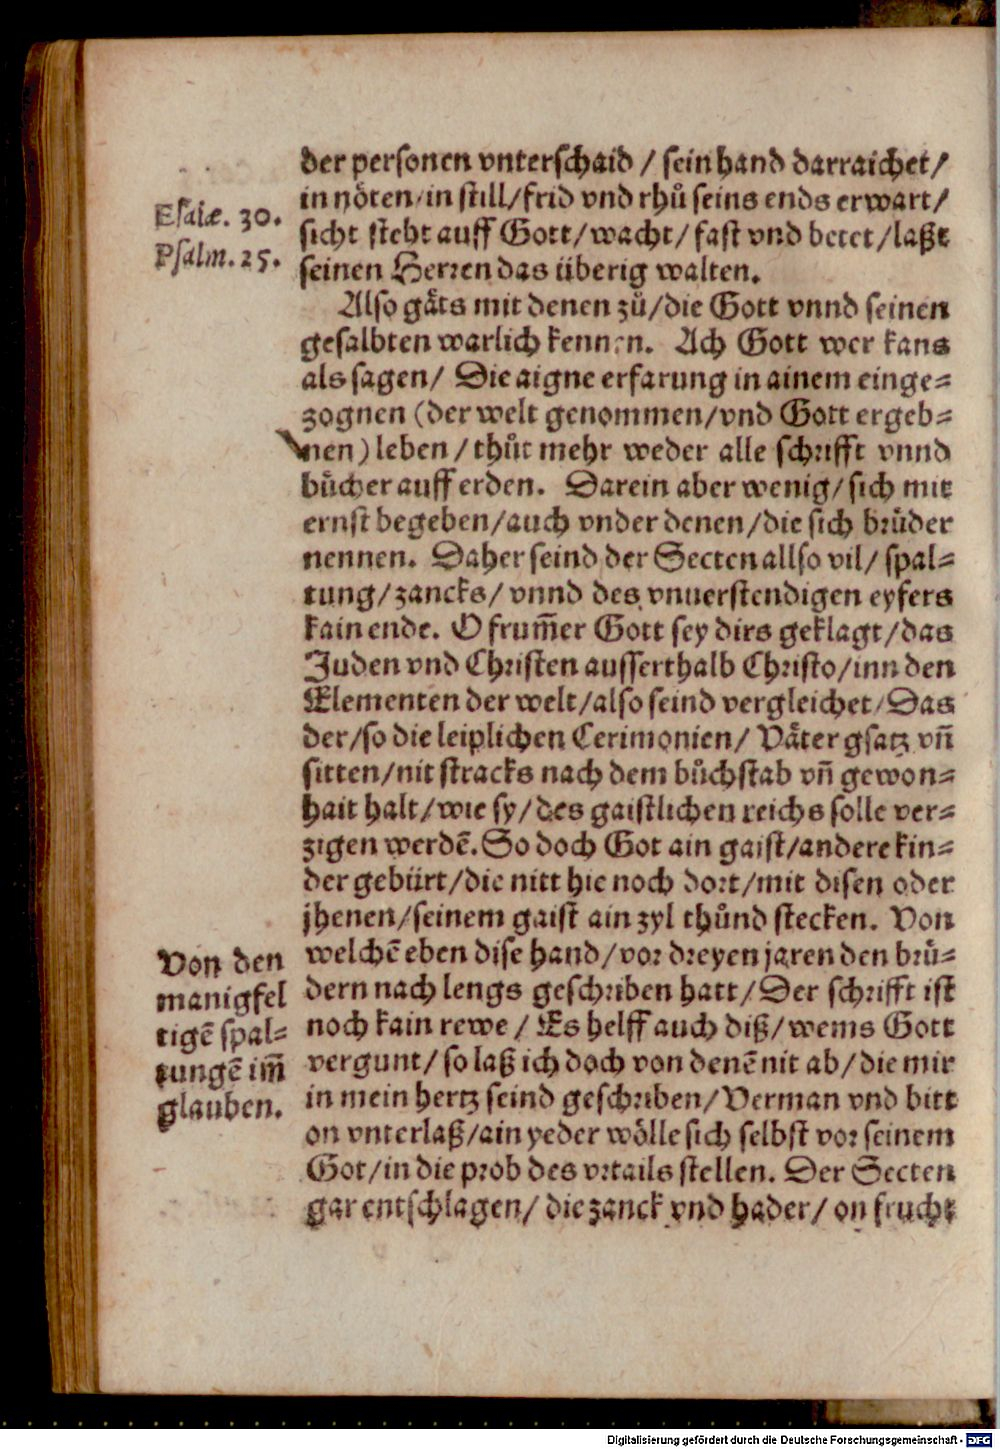 der personen vnterschaid / sein hand darraichet /
in nöten / in still / frid vnd rhuͦ seins ends erwart /
Esaiæ. 30.
sicht steht auff Gott / wacht / fast vnd betet / laßt
Psalm. 25.
seinen Herren das überig walten.
Also gaͤts mit denen zuͦ / die Gott vnnd seinen
gesalbten warlich kennen. Ach Gott wer kans
als sagen / Die aigne erfarung in ainem einge⸗
zognen (der welt genommen / vnd Gott ergeb⸗
nen) leben / thuͦt mehr weder alle schrifft vnnd
buͤcher auff erden. Darein aber wenig / sich mit
ernst begeben / auch vnder denen / die sich bruͤder
nennen. Daher seind der Secten allso vil / spal⸗
tung / zancks / vnnd des vnuerstendigen eyfers
kain ende. O frum̄er Gott sey dirs geklagt / das
Juden vnd Christen ausserthalb Christo / inn den
Elementen der welt / also seind vergleichet / Das
der / so die leiplichen Cerimonien / Vaͤter gsatz vn̄
sitten / nit stracks nach dem buͦchstab vn̄ gewon⸗
hait halt / wie sy / des gaistlichen reichs solle ver⸗
zigen werdē. So doch Got ain gaist / andere kin⸗
der gebürt / die nitt hie noch dort / mit disen oder
jhenen / seinem gaist ain zyl thuͦnd stecken. Von
welchē eben dise hand / vor dreyen jaren den bruͤ⸗
dern nach lengs geschriben hatt / Der schrifft ist
noch kain rewe / Es helff auch diß / wems Gott
vergunt / so laß ich doch von denē nit ab / die mir
in mein hertz seind geschriben / Verman vnd bitt
on vnterlaß / ain yeder woͤlle sich selbst vor seinem
Got / in die prob des vrtails stellen. Der Secten
gar entschlagen / die zanck vnd hader / on frucht
Von den
manigfel
tigē spal⸗
tungē im̄
glauben.
Digitalisierung gefördert durch die Deutsche Forschungsgemeinschaft - DFG